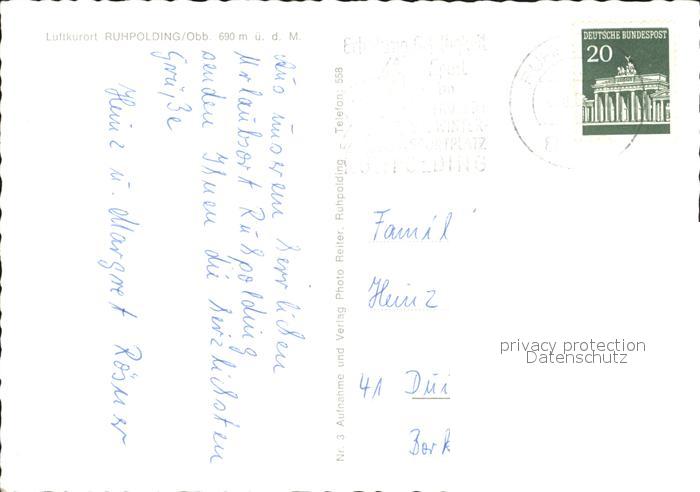 Luftkurort RUHPOLDING/Obb. 690 m ü. d. M.
Aus unserem herrlichen
Urlaubsort Ruhpolding
senden Ihnen die herzlichsten
Grüße
Heinz u. Margret Rösner
Nr. 3 Aufnahme und Verlag Photo Reiter, Ruhpolding Telefon: 558
WINTER-
SPORTPLATZ
RUHPOLDING
DEUTSCHE BUNDESPOST
20
Famil
Heinz
41 Dui
Bork
privacy protection
Datenschutz